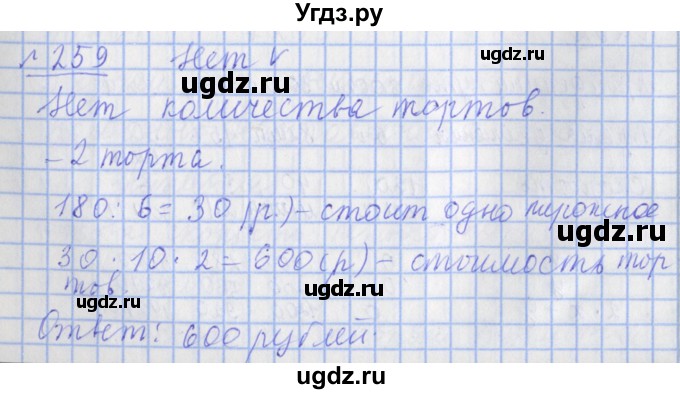 Угдз.ру
№ 259 Нет к
ugdz.ru ugdz.ru
Нет количества тортов.
- 2 торта.
ugdz.ru
180 : 6 = 30 (р.) - стоит одно пирожное
ugdz.ru ugdz.ru
30 · 10 · 2 = 600 (р) - стоимость тор
тов.
ugdz.ru
Ответ: 600 рублей.
ugdz.ru
ugdz.ru